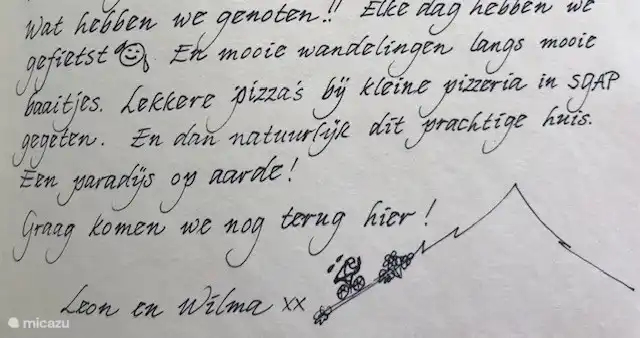 Wat hebben we genoten!! Elke dag hebben we
gefietst En mooie wandelingen langs mooie
baaitjes. Lekkere pizza's bij kleine pizzeria in SGAP
gegeten. En dan natuurlijk dit prachtige huis.
Een paradijs op aarde!
Graag komen we nog terug hier!
Leon en Wilma xx
micazu